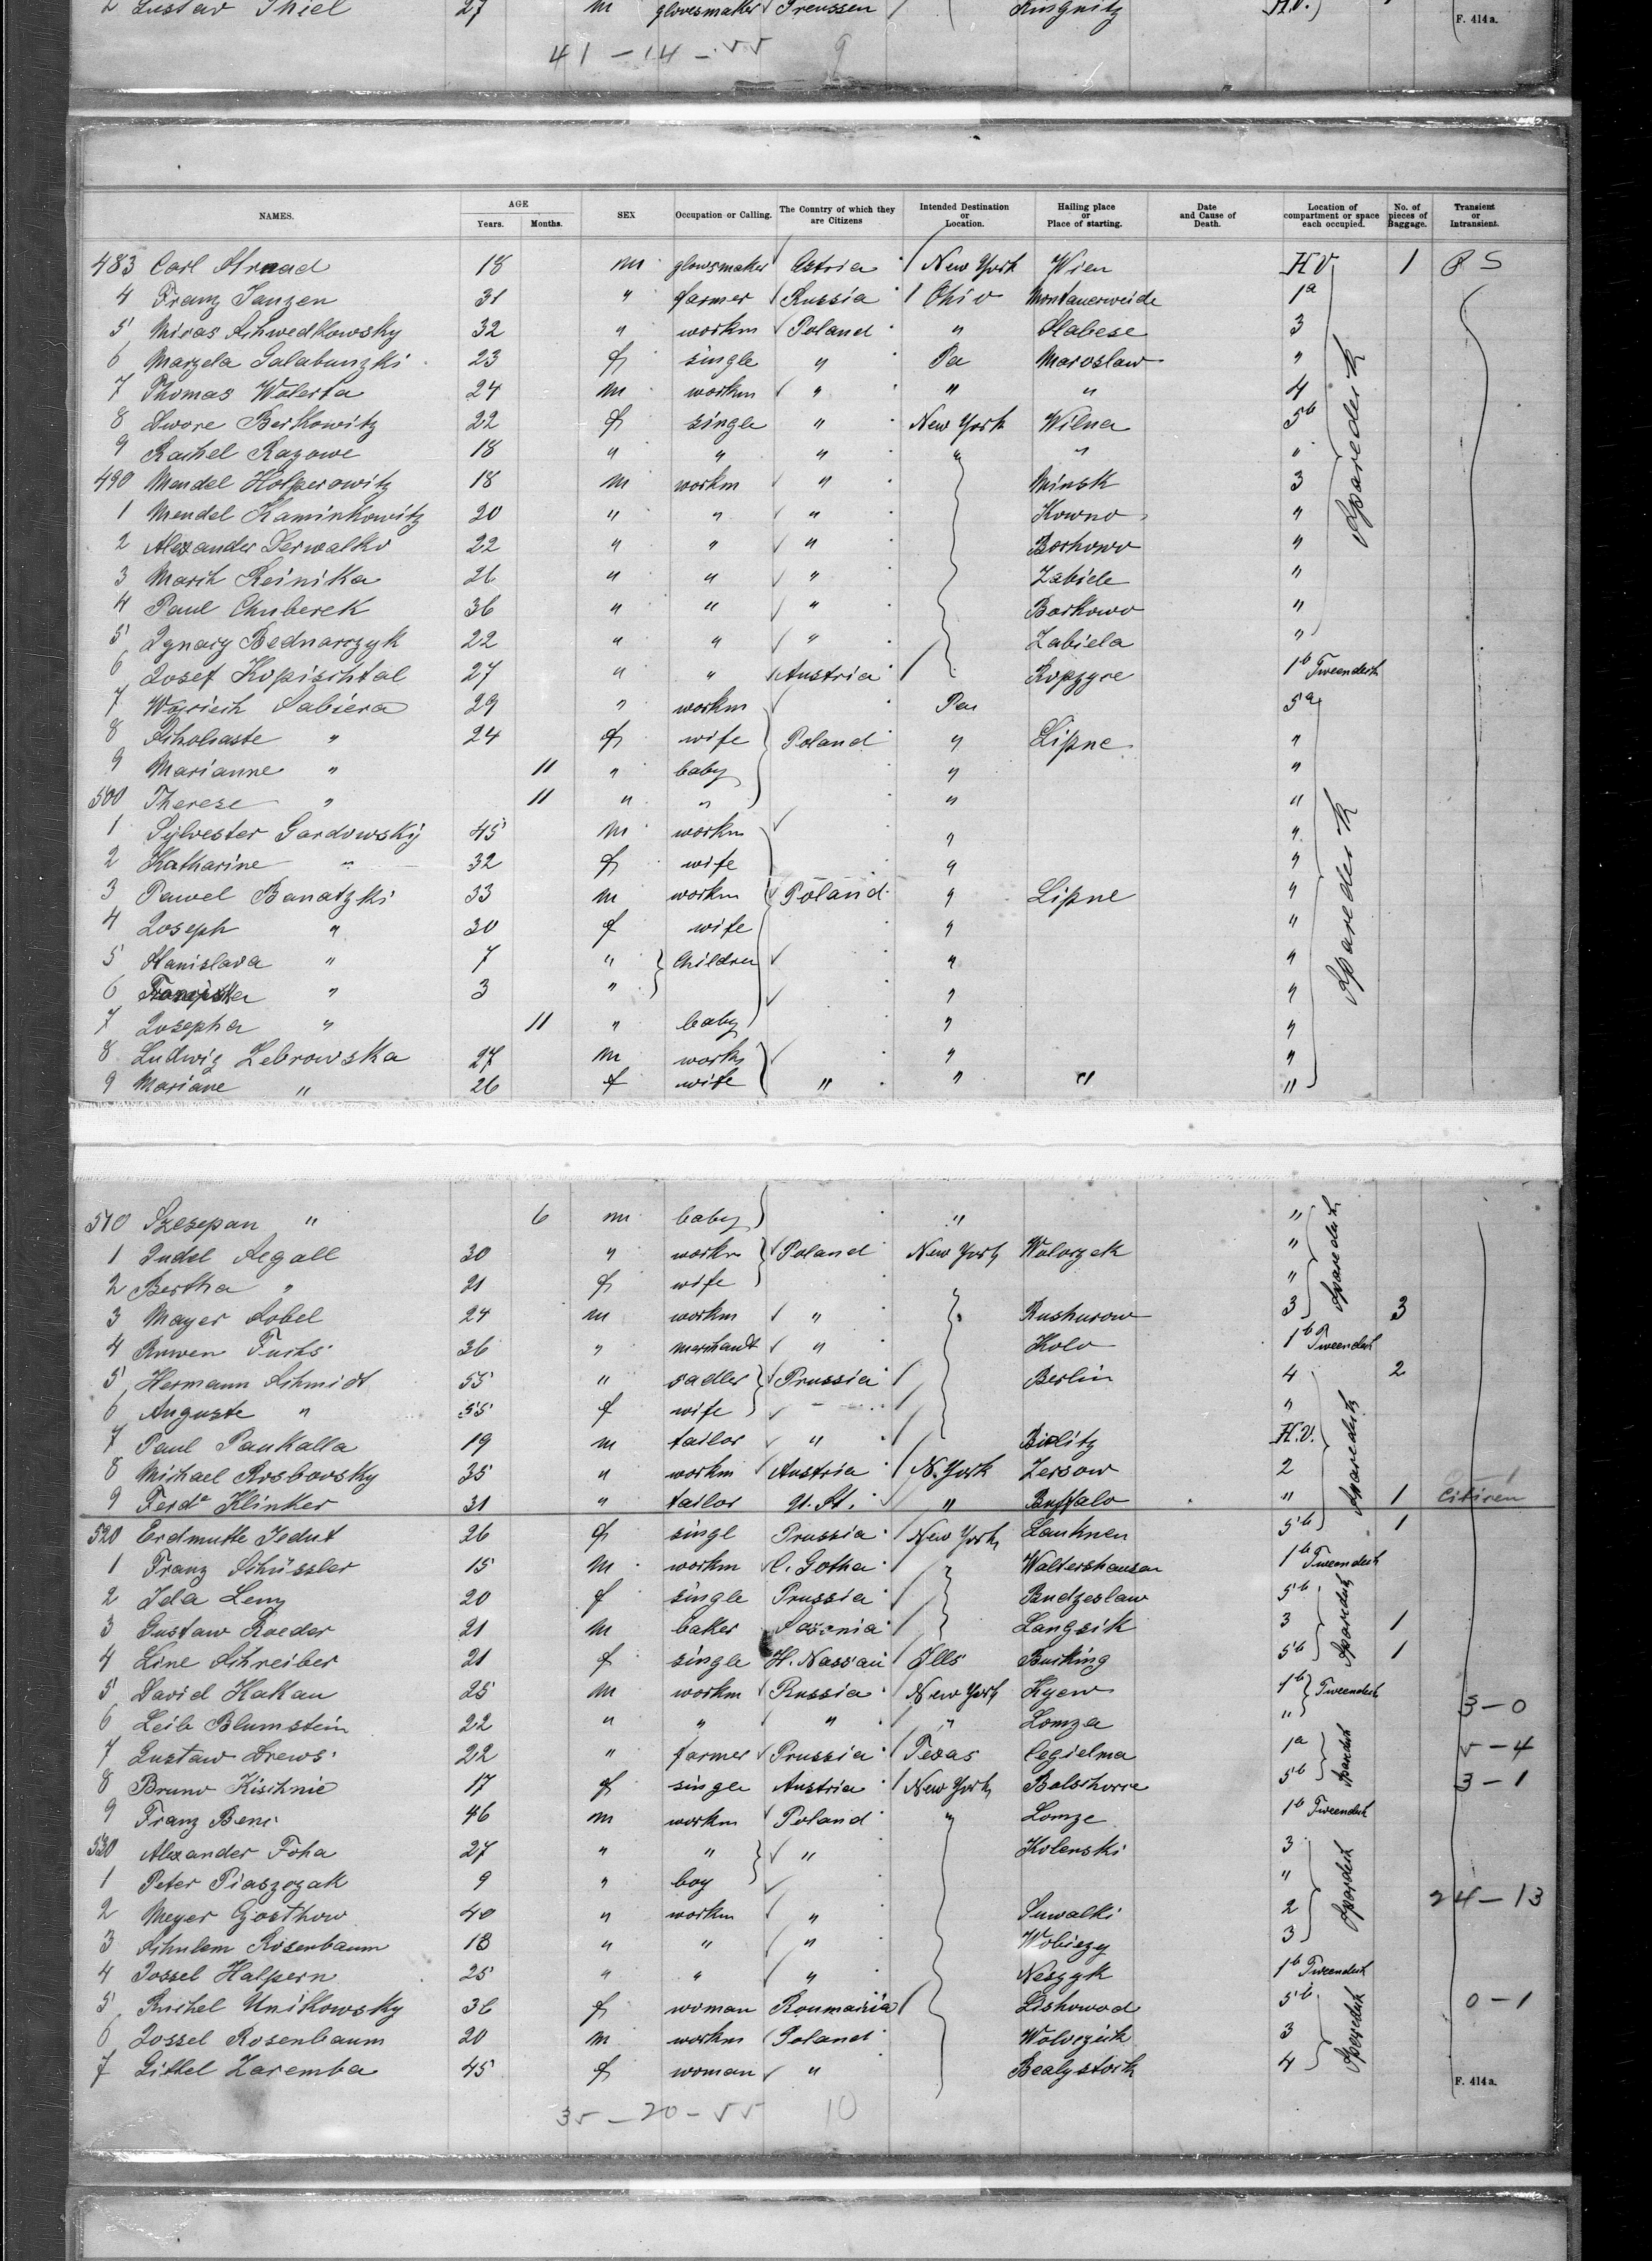 2 Gustav Thiel 27 m glovesmaker Preussen H.V.
F. 414a.
41 - 14 - 55 9
NAMES. AGE Years. Months. SEX Occupation or Calling. The Country of which they are Citizens Intended Destination or Location. Hailing place or Place of starting. Date and Cause of Death. Location of compartment or space each occupied. No. of pieces of Baggage. Transient or Intransient.
483 Carl 18 m glowsmaker Astria New York Wien H V 1 P S
4 Franz Janzen 31 " farmer Russia Ohio Montauerweide 1a
5 Schwedkowsky 32 " workm Poland " Slabese 3
6 Marzela Galabunzki 23 f single " Pa Maroslaw "
7 Thomas Walerta 24 m workm " " " 4
8 Dwore Berkowitz 22 f single " New York Wilna 5b
9 Rachel Razowe 18 " " " " " "
490 Mendel Holperowitz 18 m workm " Minsk 3
1 Mendel Kaminkowitz 20 " " " Kowno "
2 Alexander Derwalko 22 " " " Borkowo "
3 Marih Reinika 26 " " " Zabiele "
4 Paul Chuberek 36 " " " Borkowo "
5 Ignacy Bednarczyk 22 " " " Zabiela "
6 Josef Kopischtal 27 " " Austria Kopzyre 1b Tweendeck
7 Wojciech Sabiera 29 " workm Pa 5a
8 Scholiaste " 24 f wife Poland " Lipne "
9 Marianne " 11 " baby " "
500 Therese " 11 " " " "
1 Sylvester Gardowskij 45 m workm " "
2 Katharine " 32 f wife " "
3 Pawel Banatzki 33 m workm Poland " Lipne "
4 Joseph " 30 f wife " "
5 Stanislava " 7 " Children " "
6 " 3 " " "
7 Josepha " 11 " baby " "
8 Ludwig Zebrowska 27 m workm " "
9 Mariane " 26 f wife " " " "
Sparedeck
Sparedeck
510 Szezepan " 6 m baby " "
1 Judel Segall 30 " workm Poland New York Woloczek "
2 Bertha " 21 f wife "
3 Mayer Sobel 24 m workm " Rushurow 3 3
4 Ruwen Fuchs 36 " merchandt " Kolo 1b Tweendeck
5 Hermann Schmidt 55 " sadler Prussia Berlin 4 2
6 Auguste " 55 f wife "
7 Paul Paukalla 19 m tailor " Bielitz H.V.
8 Michael Rosbovsky 35 " workm Austria N. York Zersow 2
9 Ferd. Klinker 31 " tailor U. St. " Buffalo " 1 Citizen
520 Erdmutte Jedut 26 f singl Prussia New York Lauknen 5b 1
1 Franz Schüssler 15 m workm C. Gotha Waltershausen 1b Tweendeck
2 Ida Leny 20 f single Prussia Pandzeslaw 5b
3 Gustaw Roeder 21 m baker Saxonia Langsik 3 1
4 Line Schreiber 21 f single H. Nassau Ills Burking 5b 1
5 David Kakan 25 m workm Russia New York Kyew 1b Tweendeck
6 Leib Blumstein 22 " " " " Lomza " 3 - 0
7 Gustaw Drews 22 " farmer Prussia Texas Cegielma 1a 5 - 4
8 Bruno Kischnie 17 f single Austria New York Bolschowie 5b 3 - 1
9 Franz Bene 46 m workm Poland " Lomze 1b Tweendeck
530 Alexander Foha 27 " " " Kolenski 3
1 Peter Piaszozak 9 " boy "
2 Meyer Gosthow 40 " workm " Suwalki 2 24 - 13
3 Schulem Rosenbaum 18 " " " Wobiezy 3
4 Jossel Halpern 25 " " " Neszyk 1b Tweendeck
5 Ruchel Unikowsky 36 f woman Roumainia Lishowod 5b 0 - 1
6 Jossel Rosenbaum 20 m workm Poland Woloczisk 3
7 Gittel Zaremba 45 f woman " Bealystock 4
Sparedeck
Sparedeck
Sparedeck
Sparedeck
Sparedeck
Sparedeck
F. 414a.
35 - 20 - 55 10